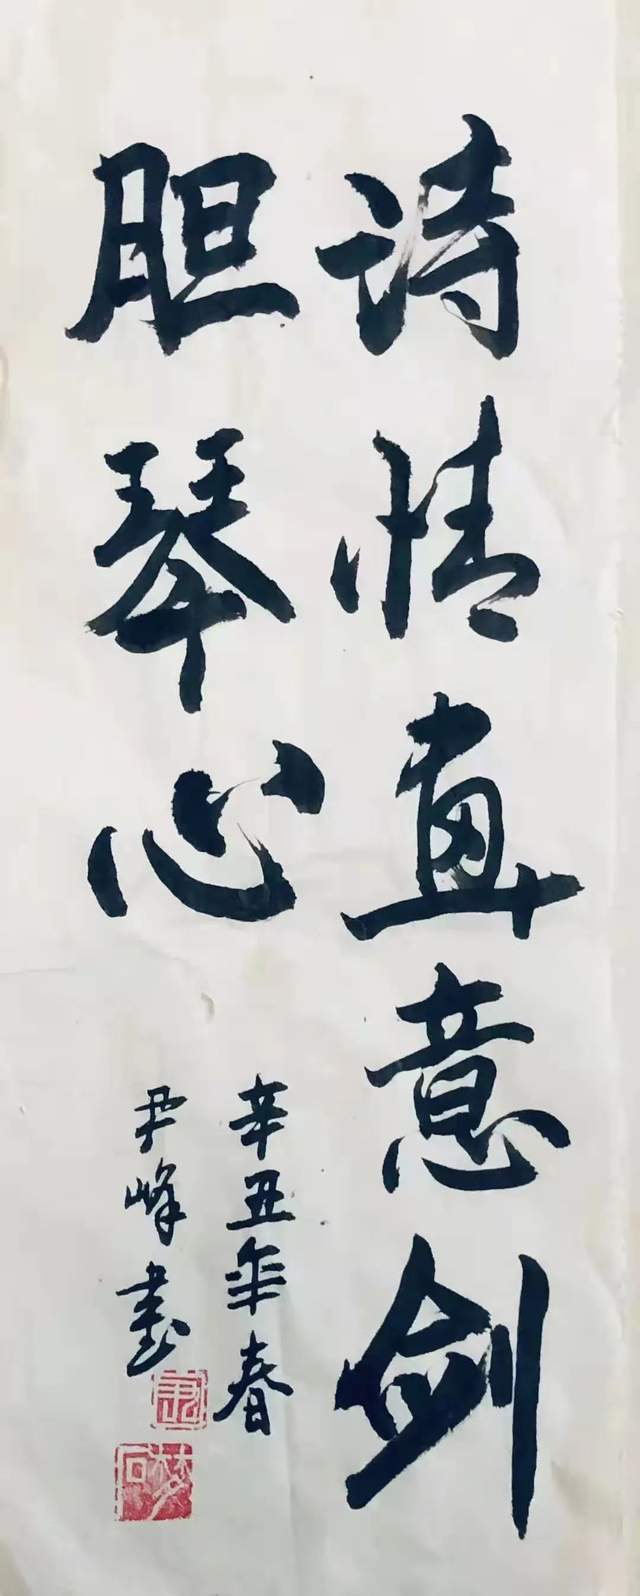 诗情画意剑
胆琴心
辛丑年春
尹峰书